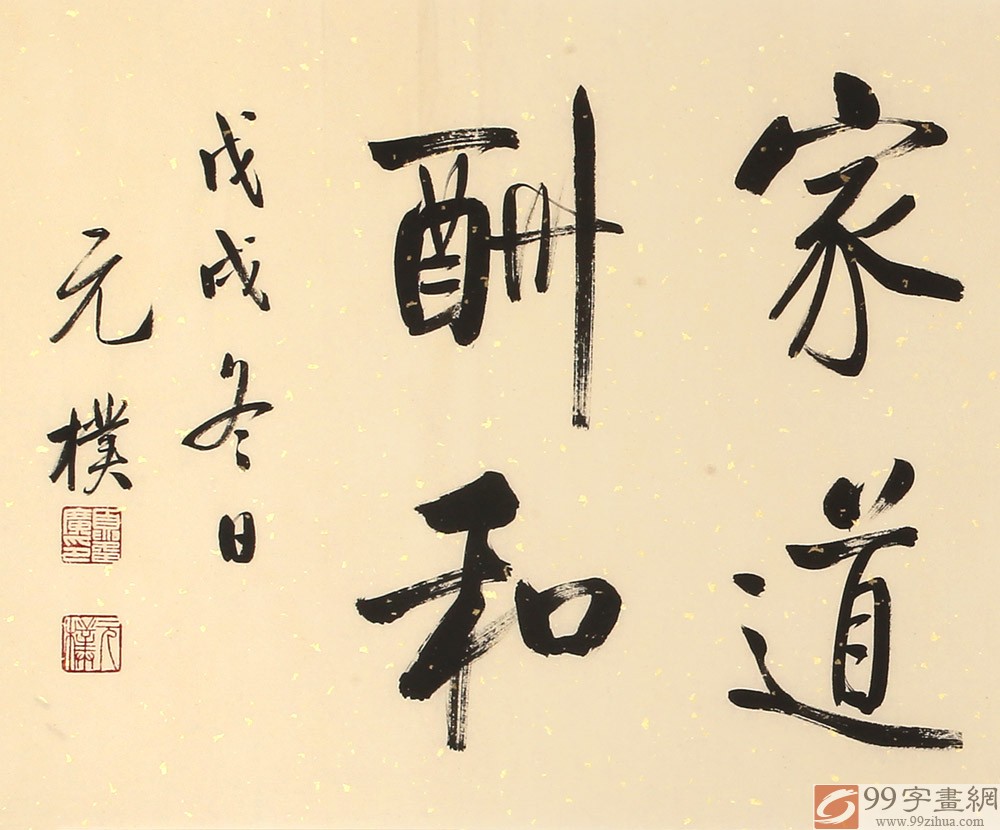 家道
酬和
戊戌冬日
元樸
元樸
99字畫網
www.99zihua.com